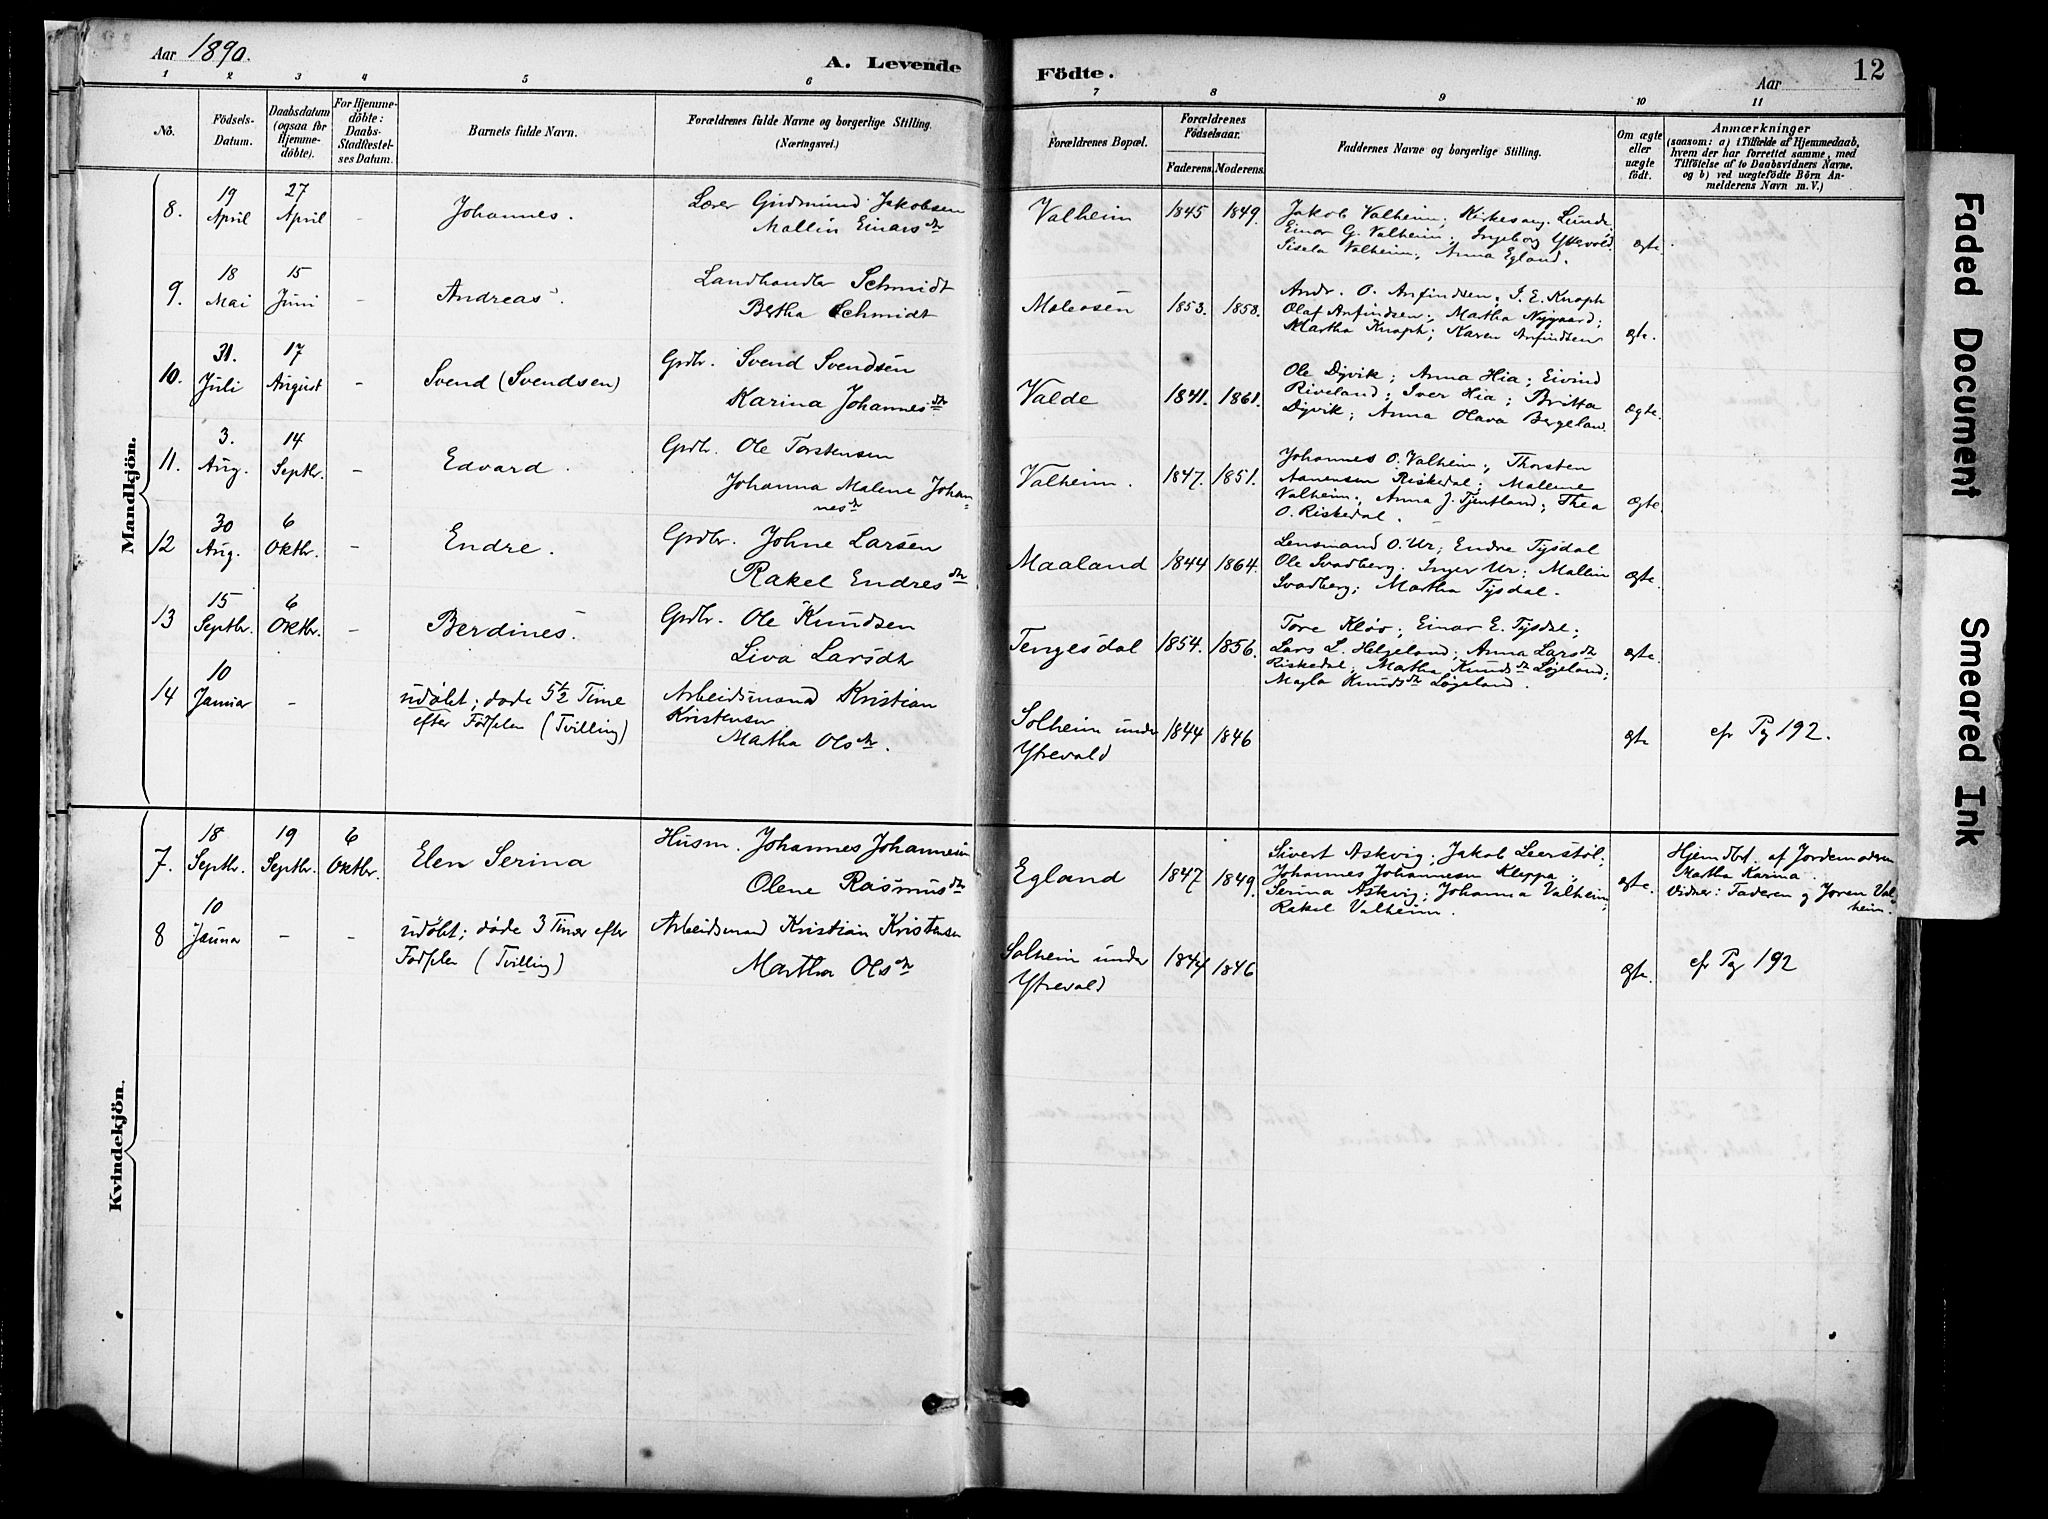 Aar 1890.
A. Levende Födte.
Aar
12
1 2 3 4 5 6 7 8 9 10 11
No.
Födsels-Datum.
Daabsdatum (ogsaa for Hjemme-döbte).
For Hjemme-döbte: Daabs-Stadfæstel-ses Datum.
Barnets fulde Navn.
Forældrenes fulde Navne og borgerlige Stilling.
(Næringsvei.)
Forældrenes Bopæl.
Forældrenes Födselsaar.
Faderens. Moderens.
Faddernes Navne og borgerlige Stilling.
Om ægte eller uægte födt.
Anmærkninger
(saasom: a) i Tilfælde af Hjemmedaab,
hvem der har forrettet samme, med
Tilföielse af to Daabsvidners Navne.
og b) ved uægtefödte Börn An-
melderens Navn m. V.)
Mandkjön.
8. 19 April 27 April - Johannes. Lærer Gudmund Jakobsen
Mallin Einarsdtr
Valheim 1845 1849. Jakob Valheim; Kirkesang. Lunde;
Einar G. Valheim; Ingeborg Ytrevold
Sisela Valheim; Anna Egland. ægte.
9. 18 Mai 15 Juni - Andreas. Landhandler Schmidt
Bertha Schmidt
Maleosen 1853. 1858. Andr. O. Anfindsen; I. E. Knoph
Olaf Anfindsen; Martha Nygaard;
Martha Knoph; Karen Anfindsen ægte.
10. 31. Juli 17 August - Svend (Svendsen) Grdbr. Svend Svendsen
Karina Johannesdtr
Valde 1841. 1861. Ole Dyvik; Anna Hia; Eivind
Riveland; Iver Hia; Britta
Dyvik; Anna Olava Bergeland. Ægte.
11. 3. Aug. 14 Septbr. - Edvard. Grdbr. Ole Torstensen
Johanna Malene Johan-
nesdtr
Valheim. 1847. 1851. Johannes O. Valheim; Thorsten
Aanensen Riskedal; Mallene
Valheim; Anna J. Tjentland; Thea
O. Riskedal. Ægte.
12 30 Aug. 6 Oktbr. - Endre. Grdbr. Johne Larsen
Rakel Endresdtr
Maaland 1844 1864. Lensmand O. Ur; Endre Tysdal
Ole Svadberg; Inger Ur; Mallin
Svadberg; Martha Tysdal. Ægte.
13 15 Septbr. 6 Oktbr. - Berdines. Grdbr. Ole Knudsen
Liva Larsdt
Tengesdal 1854. 1856. Tore Kløv; Einar E. Tysdal;
Lars L. Helgeland; Anna Larsdtr
Riskedal; Martha Knudsdtr Løgeland;
Magla Knudsdtr Løgeland. ægte.
14 10 Januar - udøbt; døde 5½ Time
efter Fødslen (Tvilling) Arbeidsmand Kristian
Kristensen
Matha Olsdtr.
Solheim under
Ytrevold 1844 1846 ægte cfr Pg 192.
Kvindekjön.
7. 18 Septbr. 19 Septbr. 6 Oktbr. Elen Serina Husm. Johannes Johannesen
Olene Rasmusdtr
Egland 1847 1849. Sivert Askvig; Jakob Leerstøl;
Johannes Johannesen Kleppa;
Serina Askvig; Johanna Valheim;
Rakel Valheim. ægte. Hjemdbt. af Jordemoderen
Martha Karina.
Vidner: Faderen og Joren Val-
heim.
8 10 Januar - - udøbt; døde 3 Timer efter
Fødslen (Tvilling) Arbeidsmand Kristian Kristensen
Martha Olsdtr
Solheim under
Ytrevold 1844 1846 Ægte. cfr Pg 192
Faded Document
Smeared Ink